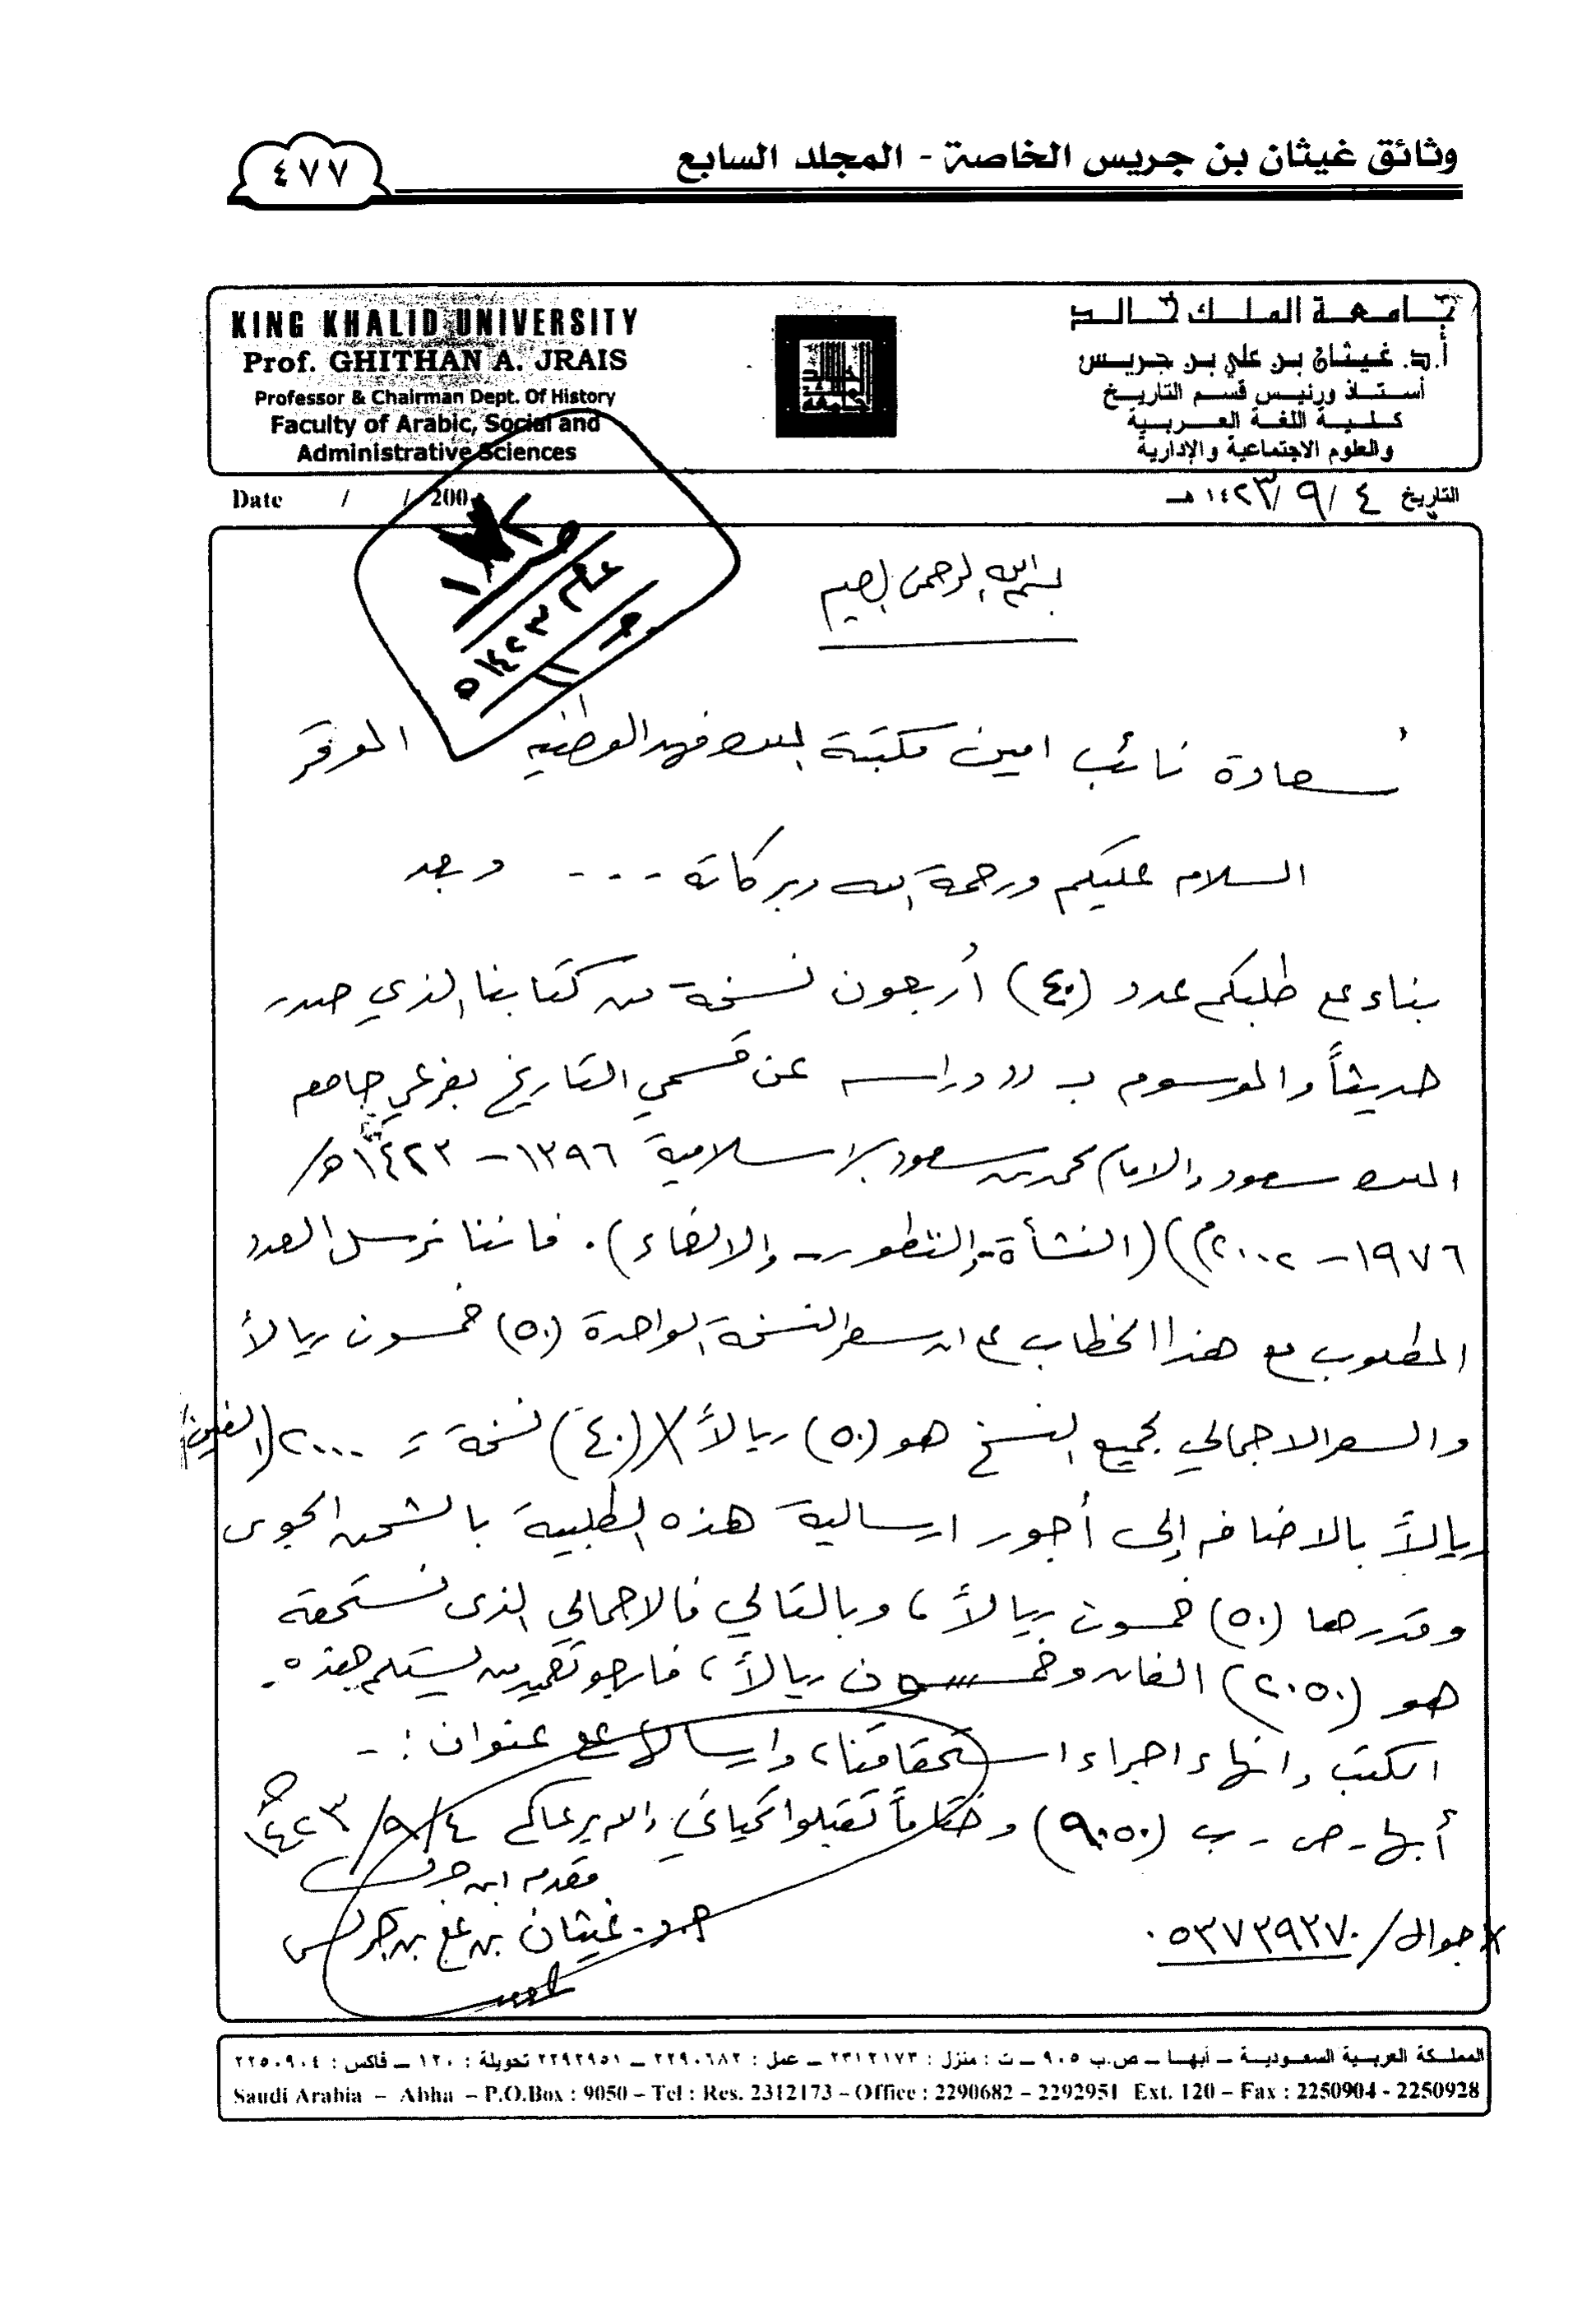 وثائق غيثان بن جريس الخاصة - المجلد السابع
٤٧٧
KING KHALID UNIVERSITY
Prof. GHITHAN A. JRAIS
Professor & Chairman Dept. Of History
Faculty of Arabic, Social and
Administrative Sciences
جامعة الملك خالد
أ.د. غيثان بن علي بن جريس
أستاذ ورئيس قسم التاريخ
كلية اللغة العربية
والعلوم الاجتماعية والإدارية
Date / / 200
التاريخ ٤ / ٩ / ١٤٢٣ هـ
صدر
١٤٢٣ هـ
بسم الله الرحمن الرحيم
سعادة نائب امين مكتبة الملك فهد الوطنيه الموقر
السلام عليكم ورحمة الله وبركاته - - - وبعد
بناء على طلبكم عدد (٤٠) أربعون نسخة من كتابنا الذي صدر
حديثاً والموسوم بـ ((دراسه عن قسمي التاريخ بفرعي جامعه
الملك سعود والامام محمد بن سعود الاسلامية ١٣٩٦ - ١٤٢٣هـ/
١٩٧٦ - ٢٠٠٢م)) (النشأة والتطور والالغاء). فاننا نرسل العدد
المطلوب مع هذا الخطاب علما ان سعر النسخة الواحدة (٥٠) خمسون ريالاً
والسعر الاجمالي لجميع النسخ هو (٥٠) ريالاً X (٤٠) نسخة = ٢٠٠٠ (الفين)
ريالاً بالاضافه إلى أجور ارسالية هذه الطلبية بالشحن الجوى
وقدرها (٥٠) خمسون ريالاً، وبالتالي فالاجمالي الذى نستحقه
هو (٢٠٥٠) الفان وخمسون ريالاً، فارجو تعميد من يستلم هذه
الكتب وانهاء اجراء استحقاقنا، وارسالها على عنوان :-
أبها - ص - ب (٩٠٥٠) وختاماً تقبلوا تحياتي والله يرعاكم ٤/٩/١٤٢٣هـ
مقدمه ابن جريس
أ.د. غيثان بن علي بن جريس
* جوال / ٠٥٣٧٣٩٣٧٠
المملكة العربية السعودية – أبهـا – ص.ب ٩٠٥ – ت : منزل : ٢٣١٢١٧٣ – عمل : ٢٢٩٠٦٨٢ – ٢٢٩٢٩٥١ تحويلة : ١٢٠ – فاكس : ٢٢٥٠٩٠٤
Saudi Arabia – Abha – P.O.Box : 9050 – Tel : Res. 2312173 – Office : 2290682 – 2292951 Ext. 120 – Fax : 2250904 - 2250928